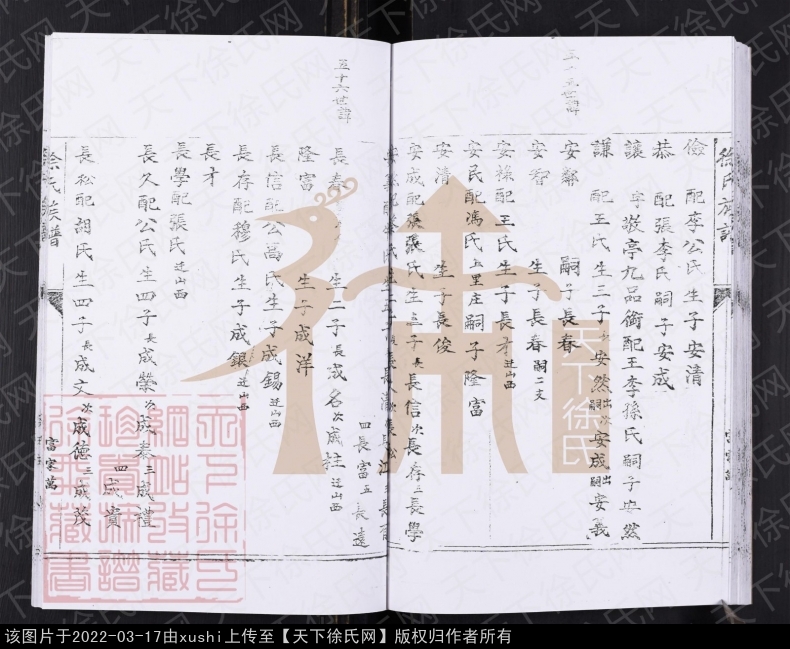 徐氏族譜
儉 配李公氏生子安清
恭 配張李氏嗣子安成
讓 字敬亭九品銜配王李孫氏嗣子安然
謙 配王氏生三子長安然出嗣次安成出嗣安義
安鄰 嗣子長春
安智 生子長春嗣二支
安祿配王氏生子長才迁山西
安民配馮氏 里庄嗣子隆富
安清 生子長俊
安成配張張氏生三子長長信次長存三長學
四長富五長遠
五十六世諱
長春 生二子長成名次成柱迁山西
隆富 生子成洋
長信配公萬氏生子成錫迁山西
長存配穆氏生子成銀迁山西
長學配張氏迁山西
長才
長久配公氏生四子長成榮次成泰三成禮
四成貴
長松配胡氏生四子長成文次成德三成茂
徐氏族譜
天下徐氏網
天下徐氏
该图片于2022-03-17由xushi上传至【天下徐氏网】版权归作者所有